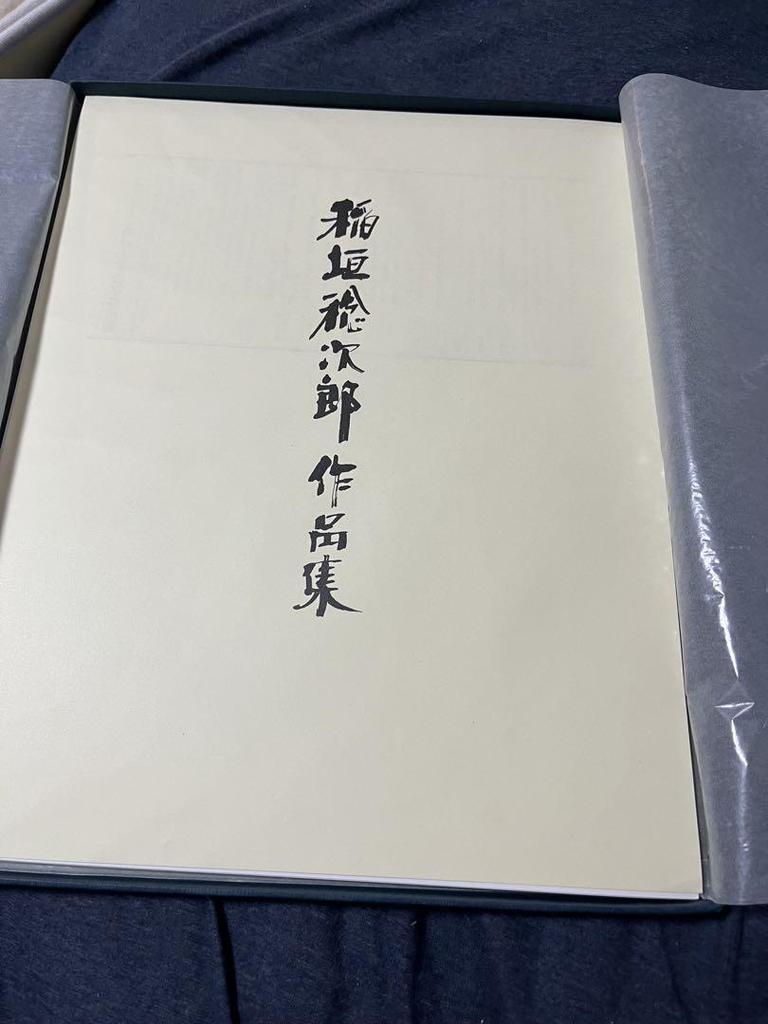 稲垣稔次郎 作品集